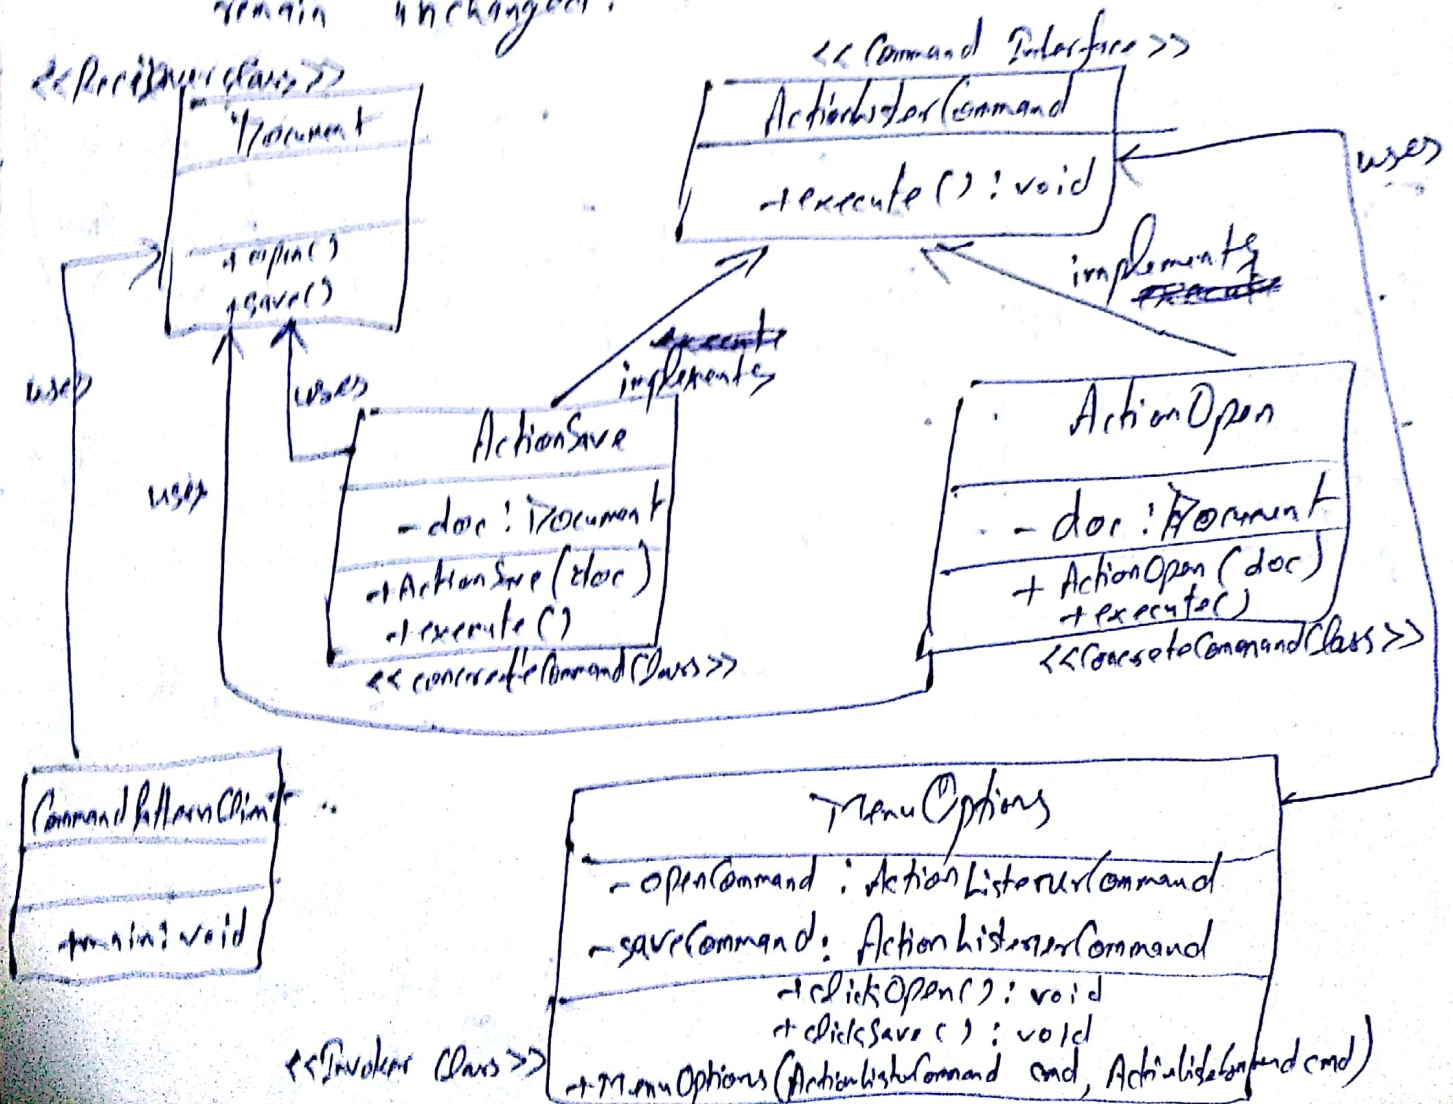 remain unchanged.
<<Receiver class>>
Document
+open()
+save()
<<Command Interface>>
ActionListerCommand
+execute() : void
uses
implements
implements
uses
uses
uses
ActionSave
-doc : Document
+ActionSave(doc)
+execute()
<<concreteCommandClass>>
ActionOpen
-doc : Document
+ ActionOpen(doc)
+execute()
<<ConcreteCommandClass>>
CommandPatternClint
+main: void
MenuOptions
-openCommand : ActionListenerCommand
-saveCommand: ActionListenerCommand
+clickOpen() : void
+clickSave() : void
+MenuOptions(ActionListerCommand cmd, ActionListerCommand cmd)
<<Invoker Class>>